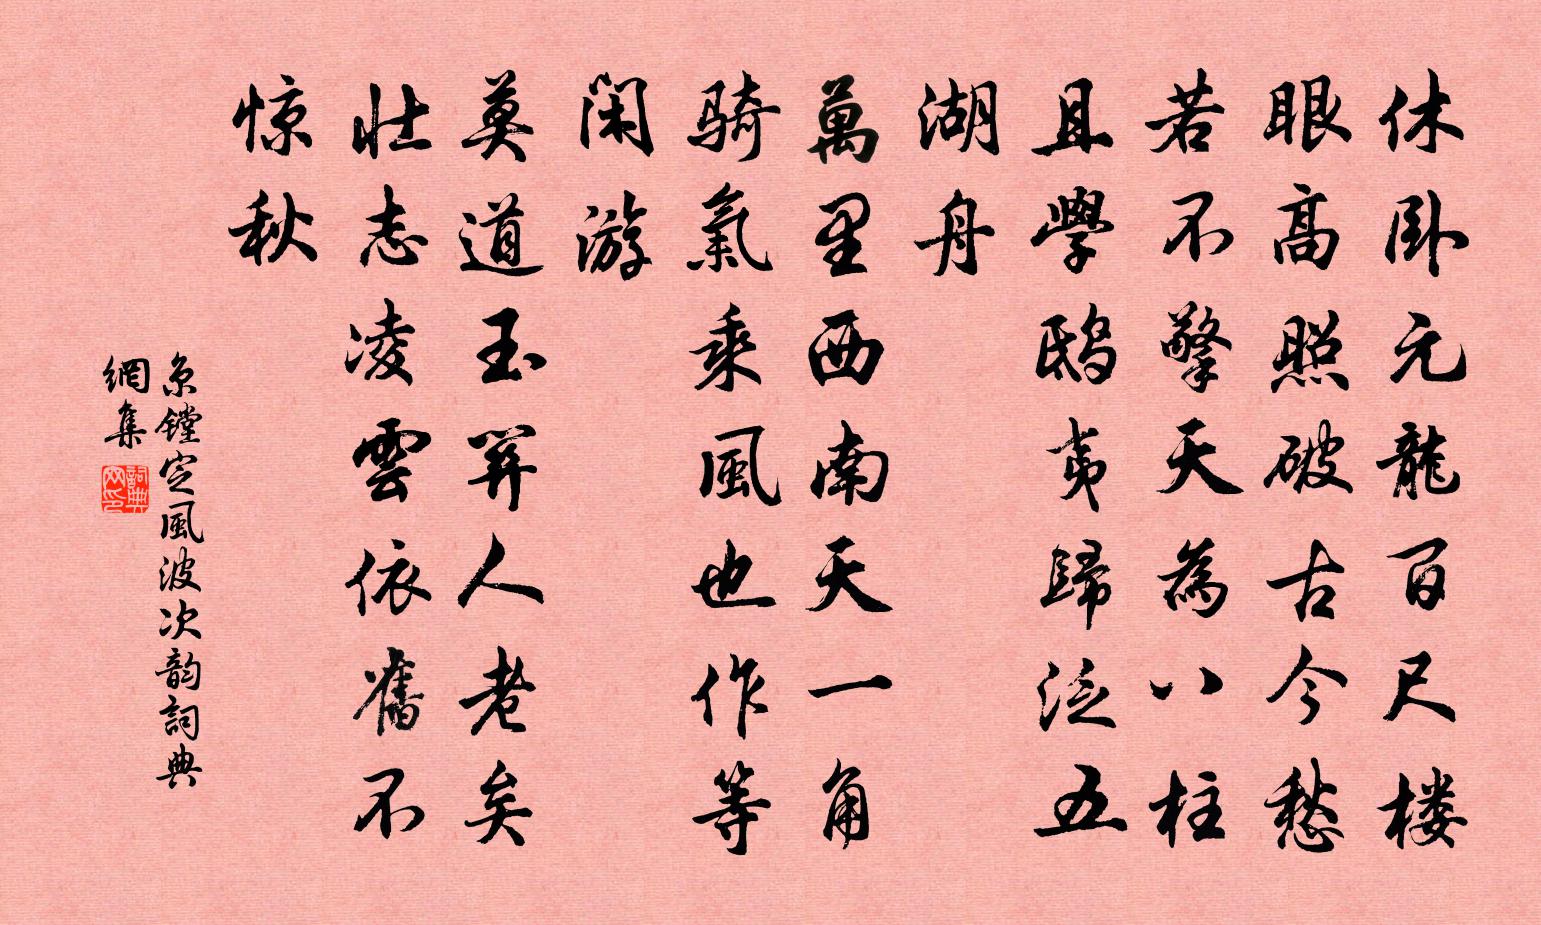 休卧元龍百尺楼
眼高照破古今愁
若不擎天為八柱
且學鸱夷歸泛五
湖舟
萬里西南天一角
骑氣乘風也作等
闲游
莫道玉關人老矣
壮志凌雲依舊不
惊秋
京镗定風波次韵詞典
網集
詞典網印